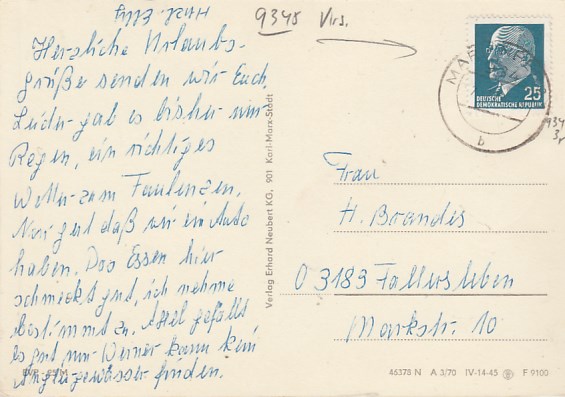 9345 Vrs.
Herzliche Urlaubs-
grüße senden wir Euch.
Leider gab es bisher nur
Regen, ein richtiges
Wetter zum Faulenzen.
Nur gut daß wir ein Auto
haben. Das Essen hier
schmeckt gut, ich nehme
bestimmt zu. Axel gefällt
es gut, nur Werner kann kein
Angelgewässer finden.
Verlag Erhard Neubert KG, 901 Karl-Marx-Stadt
25
DEUTSCHE
DEMOKRATISCHE REPUBLIK
MAR
b
Frau
H. Brandes
O 3183 Fallersleben
Markstr. 10
46378 N A 3/70 IV-14-45 F 9100